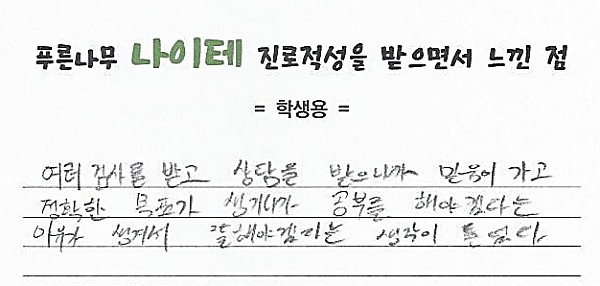 푸른나무 나이테 진로적성을 받으면서 느낀 점
= 학생용 =
여러 검사를 받고 상담을 받으니까 믿음이 가고
정확한 목표가 생기니까 공부를 해야 겠다는
이유가 생겨서 잘해야겠다는 생각이 든